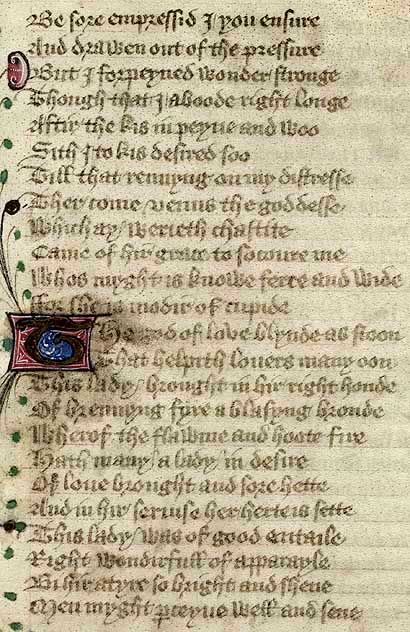 Be sore empressid I you ensure
And drawen out of the pressure
But I forpeyned wonder stronge
Though that I aboode right longe
Aftir the kis in peyne and woo
Sith I to kis desired soo
Till that rennyng on my distresse
Ther come venus the goddesse
Which ay / werieth chastite
Came of hir grace to socoure me
Whos myght is knowe ferre and wide
For she is modir of cupide
The god of love blynde as stoon
That helpith lovers many oon
This lady / brought in hir right honde
Of brennyng fyre a blasyng bronde
Wherof the flawme and hoote fire
Hath many / a lady / in desire
Of love brought and sore hette
And in hir servise her herte is sette
This lady / was of good entaile
Right wondirfull of apparayle
Bi hir atyre so bright and shene
Men myght perceyue well and sene